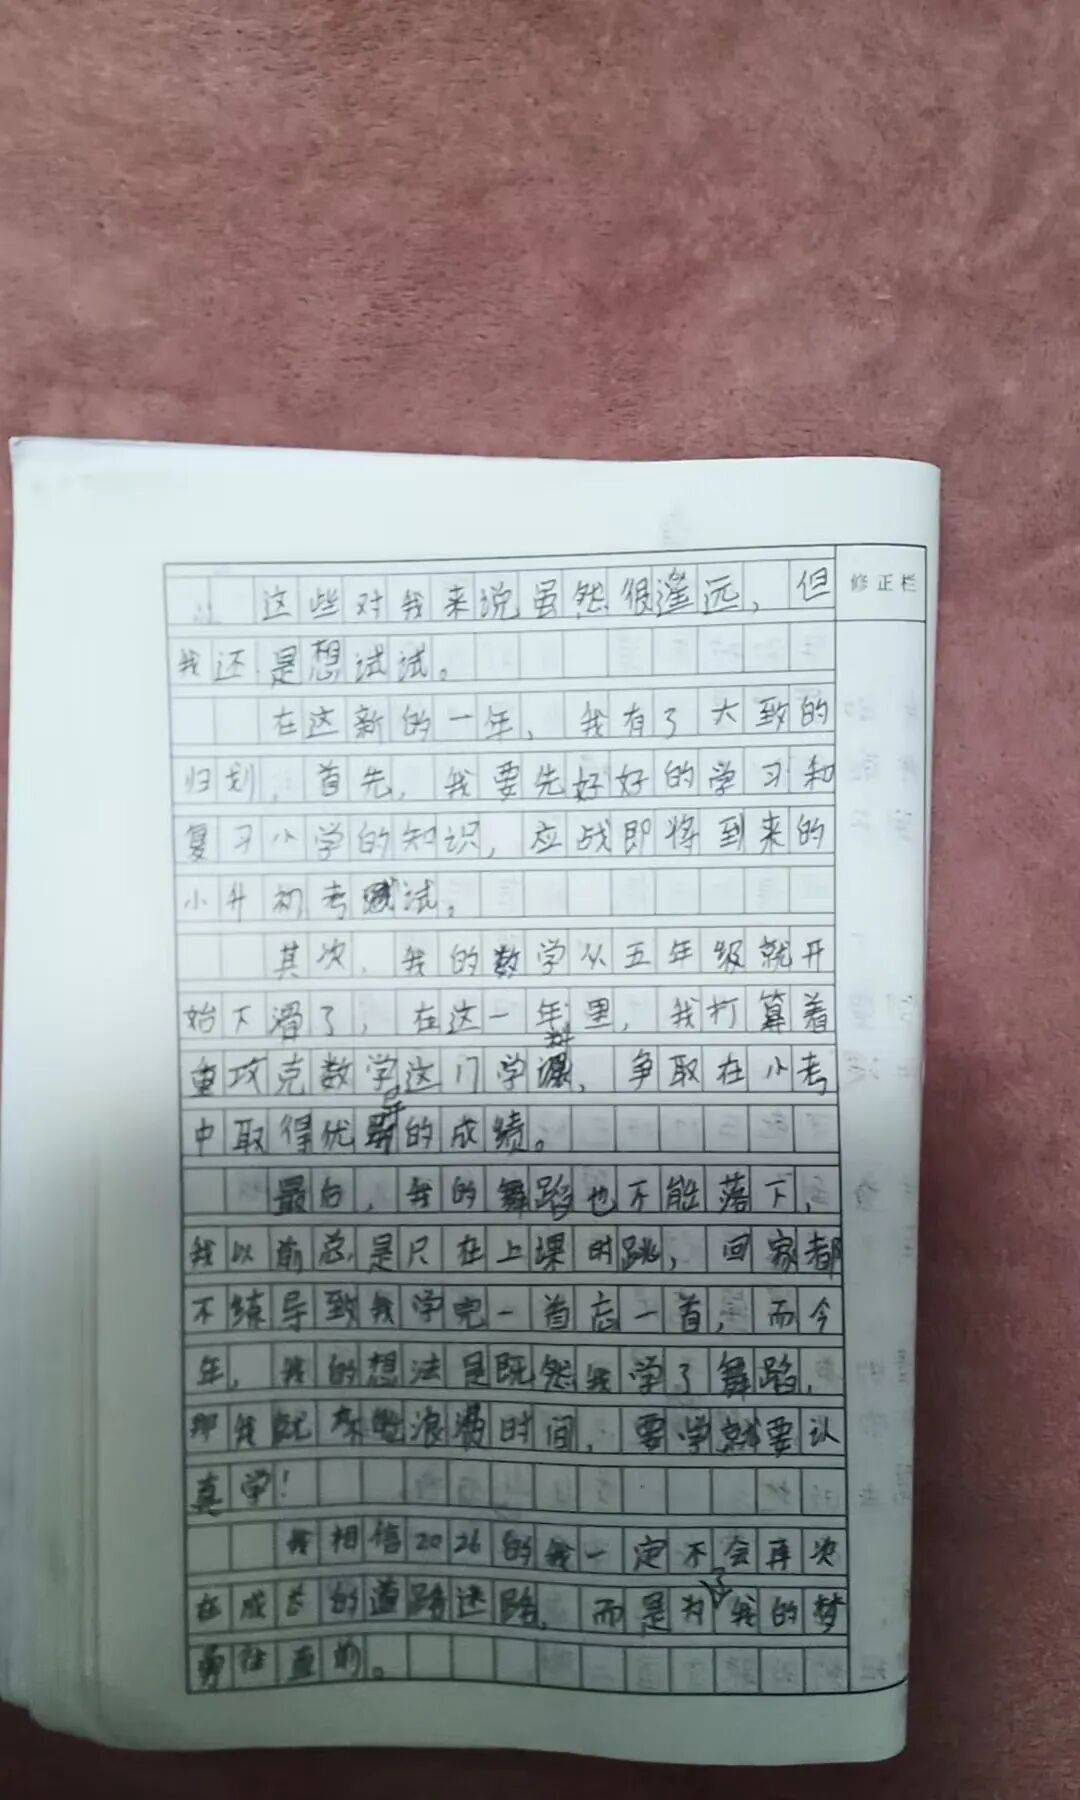 修正栏
这些对我来说虽然很遥远，但
我还是想试试。
在这新的一年，我有了大致的
归划，首先，我要先好好的学习和
复习小学的知识，应战即将到来的
小升初考试。
其次，我的数学从五年级就开
始下滑了，在这一年里，我打算着
重攻克数学这门学科，争取在小考
中取得优异的成绩。
最后，我的舞蹈也不能落下，
我以前总是只在上课时跳，回家都
不练导致我学完一首忘一首，而今
年，我的想法是既然我学了舞蹈，
那我就不能浪费时间，要学就要认
真学！
我相信2026的我一定不会再次
在成长的道路迷路，而是为了我的梦
勇往直前。